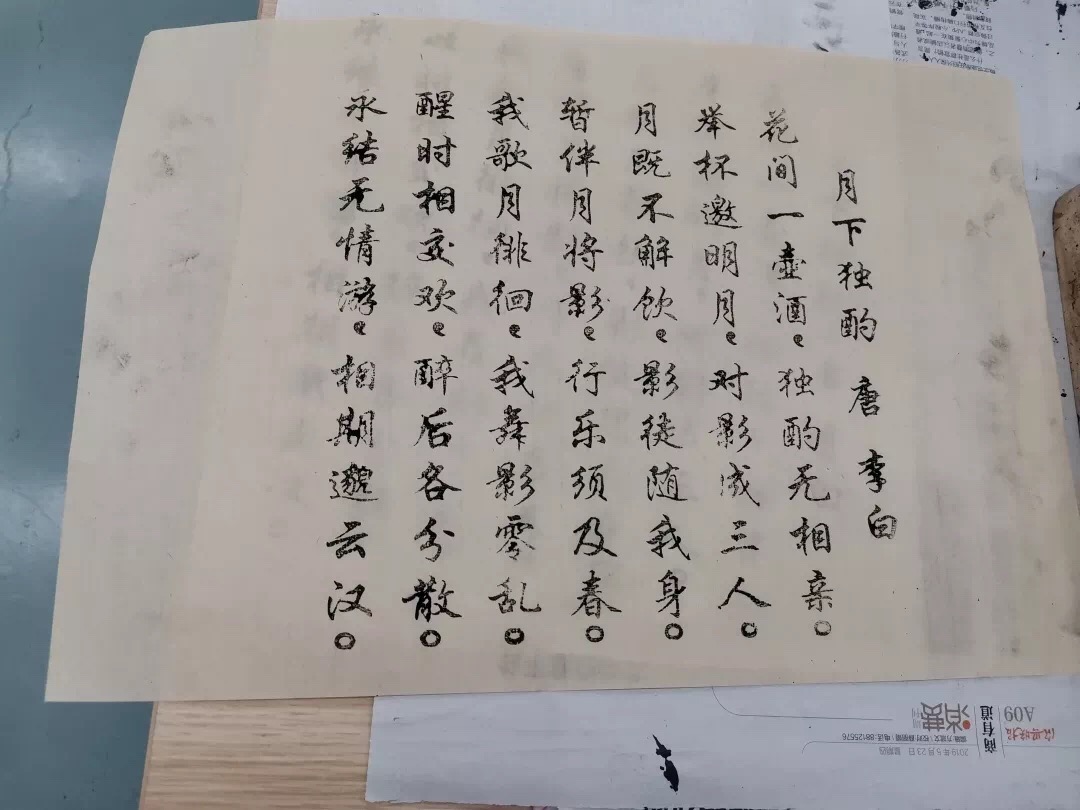 月下独酌 唐 李白
花间一壶酒，独酌无相亲。
举杯邀明月，对影成三人。
月既不解饮，影徒随我身。
暂伴月将影，行乐须及春。
我歌月徘徊，我舞影零乱。
醒时相交欢，醉后各分散。
永结无情游，相期邈云汉。
A09
商有道
2019年5月23日 星期四
88125576